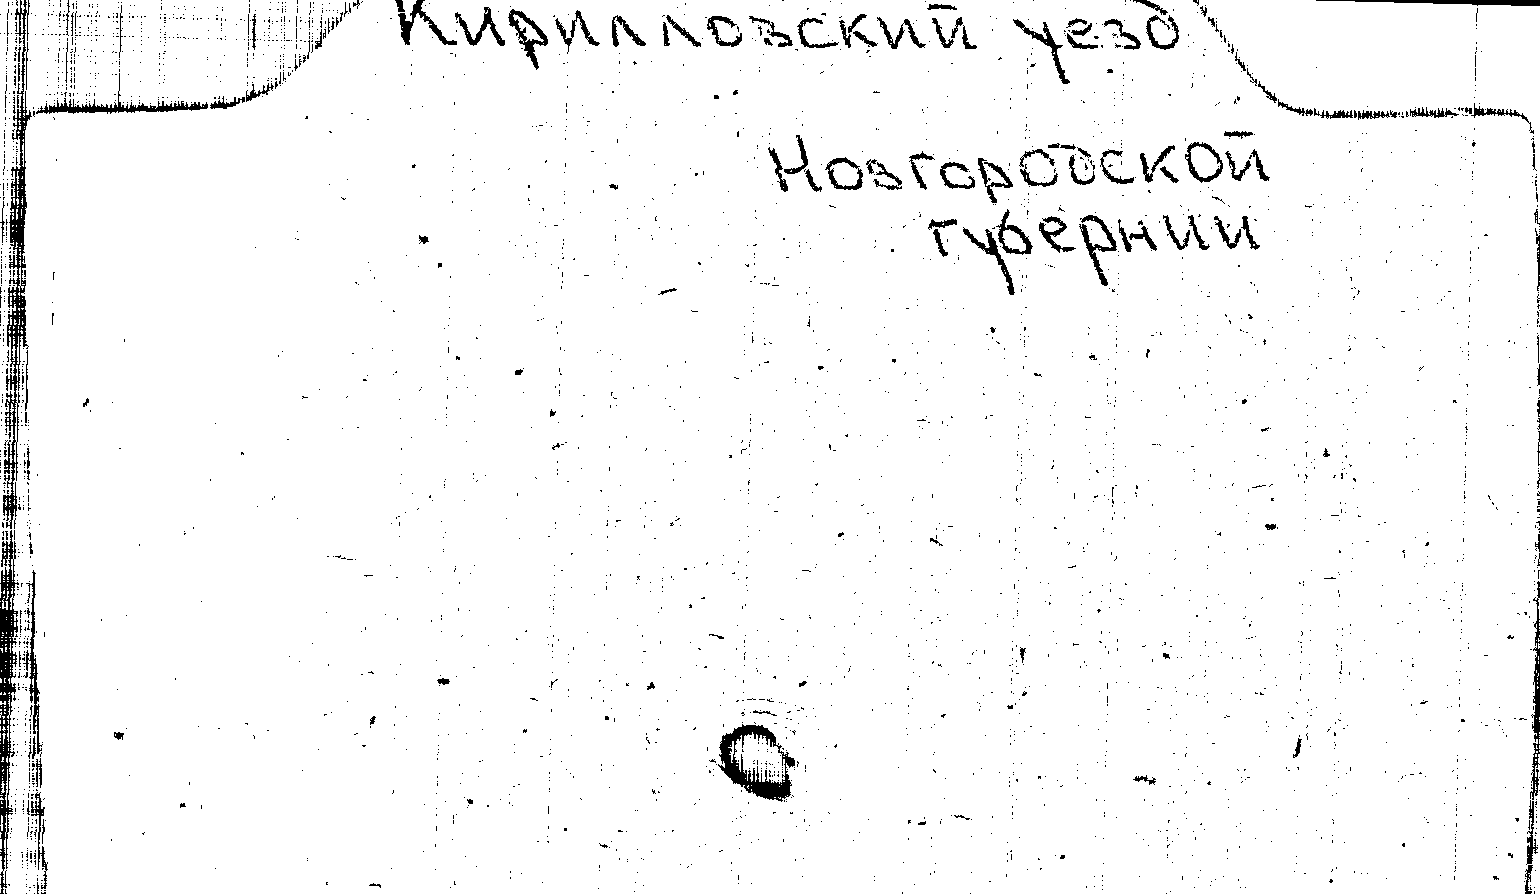 Кирилловский уезд
Новгородской
губернии